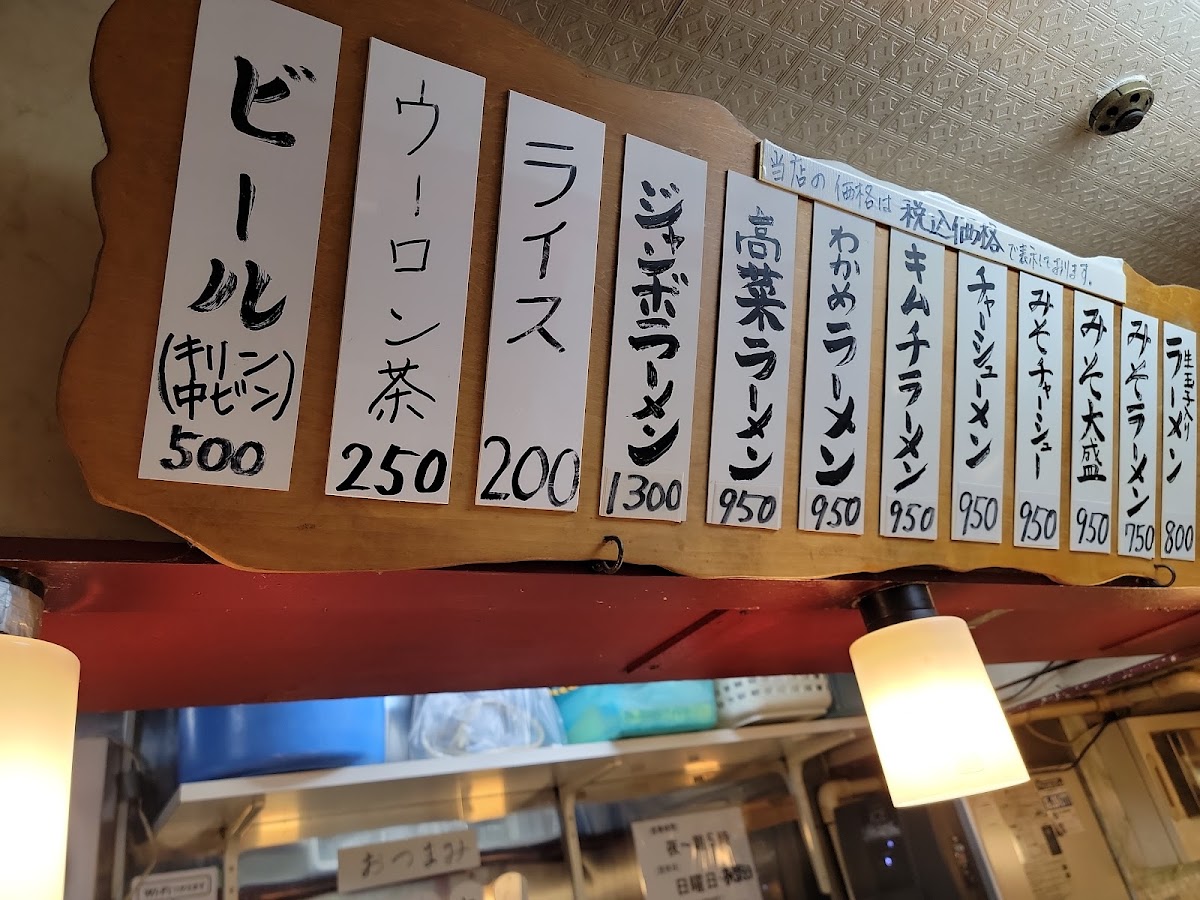 当店の価格は税込価格で表示しております。
生玉子入り
ラーメン
800
みそラーメン
750
みそ大盛
950
みそチャーシュー
950
チャーシューメン
950
キムチラーメン
950
わかめラーメン
950
高菜ラーメン
950
ジャンボラーメン
1300
ライス
200
ウーロン茶
250
ビール
(キリン
中ビン)
500
おつまみ
夜〜朝5時
日曜日